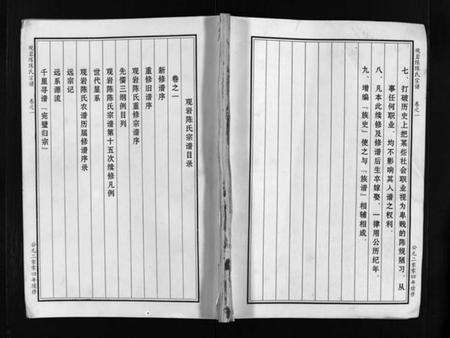 观岩陈氏宗谱 卷之一
七、打破历史上把某些社会职业视为卑贱的陈规陋习,从
事任何职业,均不影响其人谱之权利。
八、凡本此续修及修谱后生卒嫁娶,一律用公历纪年。
九、增编「族史」使之与「族谱」相辅相成。
公元二零零四年续修
观岩陈氏宗谱 卷之一
观岩陈氏宗谱目录
卷之一
新修谱序
重修旧谱序
观岩陈氏重修宗谱序
先儒三纲例目列
观岩陈氏宗谱第十五次续修凡例
世代星系
观岩陈氏衣谱历届修谱序录
远宗记
远系源流
千里寻谱 完璧归宗
公元二零零四年续修